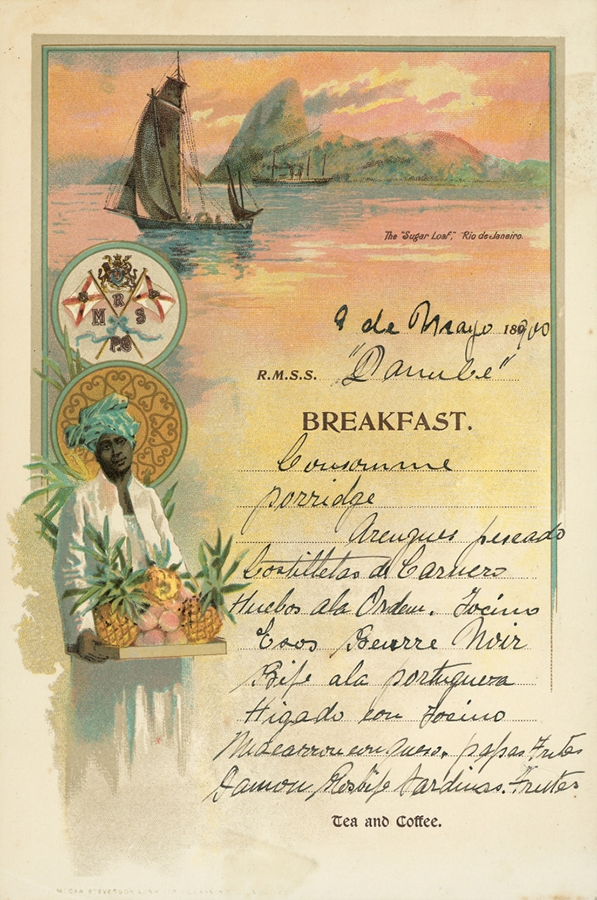 The "Sugar Loaf," Rio de Janeiro.
R
M S
P.C
9 de Mayo 18900
R.M.S.S. "Danube"
BREAKFAST.
Consomme
porridge
Arenques pescado
Costilletas de Carnero
Huebos ala Orden. Tocino
Esos Beurre Noir
Bife ala portuguesa
Higado con Tocino
Macarron con queso. papas Frites
Jamon, Rosbife Sardinas. Frutes
Tea and Coffee.